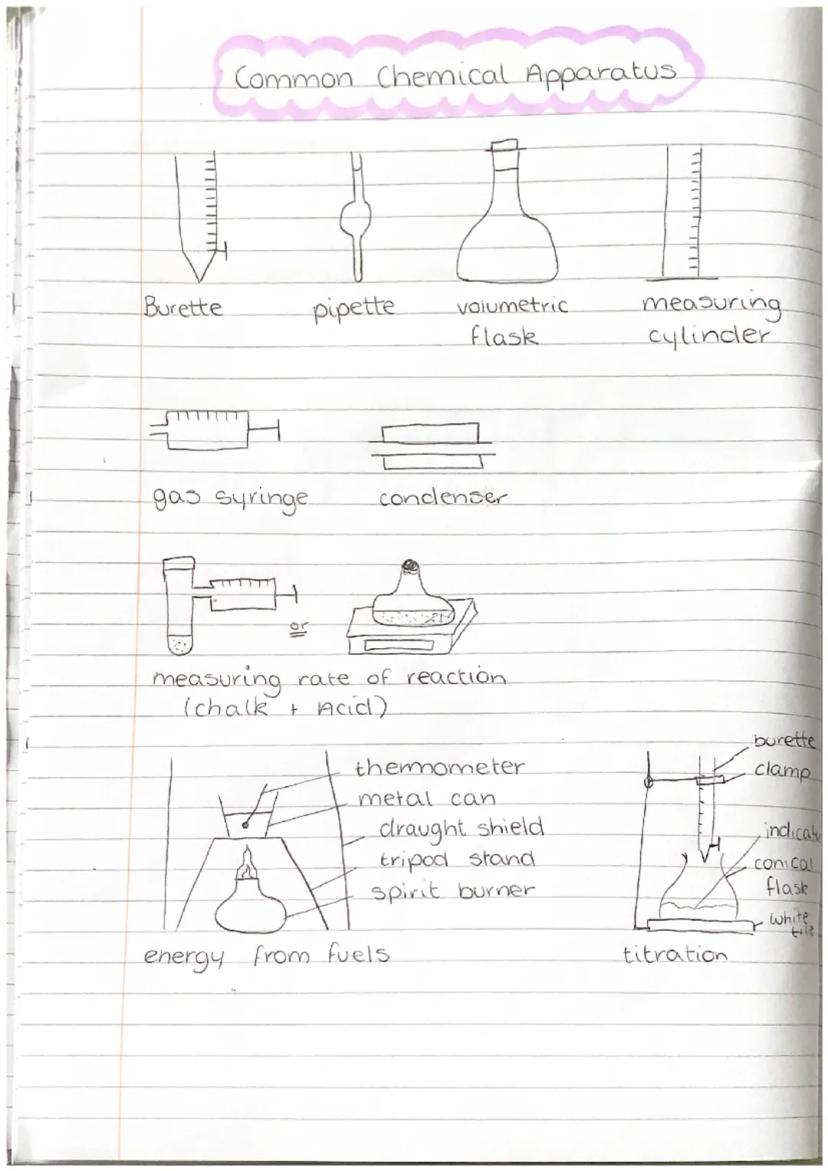 Common Chemical Apparatus
Burette
pipette
volumetric
flask
measuring
cylinder
gas syringe
condenser
or
measuring rate of reaction
(chalk + Acid)
thermometer
metal can
draught shield
tripod stand
spirit burner
energy from fuels
burette
clamp
indicat
conical
flask
white
tile
titration